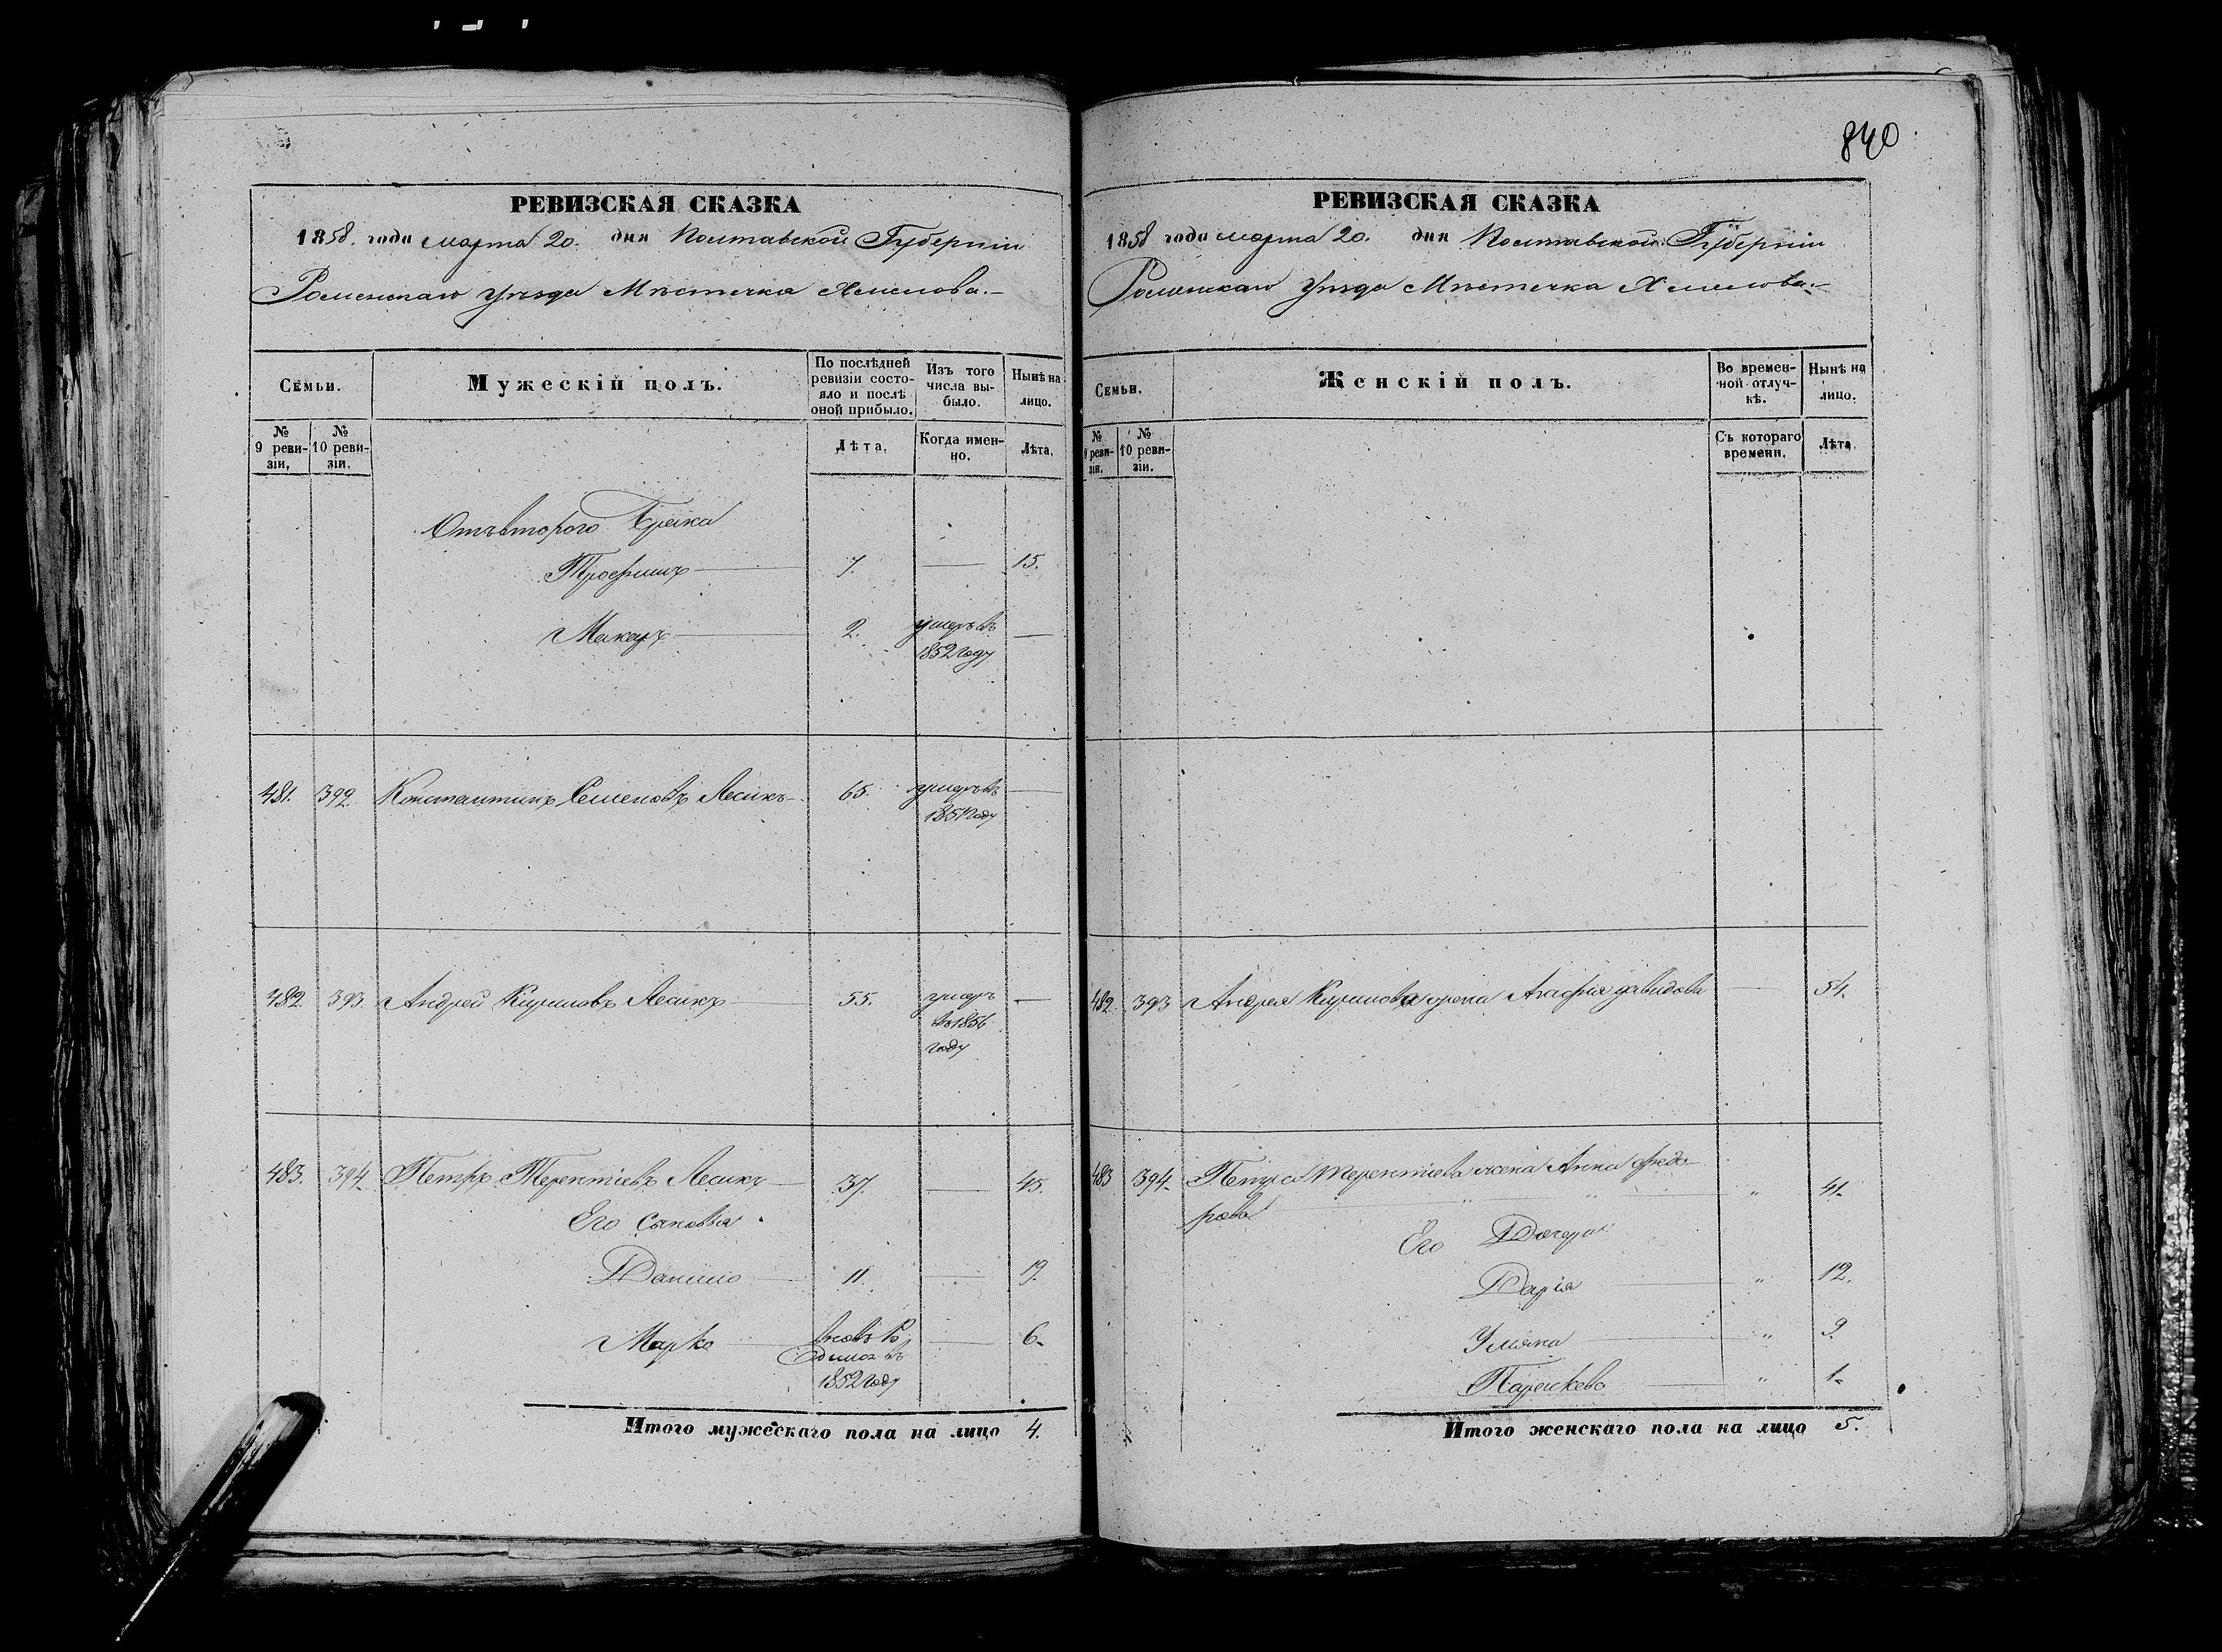 840
РЕВИЗСКАЯ СКАЗКА
1858. года марта 20. дня Полтавской Губерніи
Роменскаго Уѣзда Мѣстечка Хмелова.
Семьи.
Мужескій полъ.
По послѣдней ревизіи состояло и послѣ оной прибыло.
Изъ того числа выбыло.
Нынѣ на лицо.
№ 9 ревизіи.
№ 10 ревизіи.
Лѣта.
Когда именно.
Лѣта.
Отъ второго брака
Трофимъ 7. 15.
Макаръ 2. умеръ въ
1852 году
481. 392. Константинъ Семеновъ Лесикъ 65. умеръ въ
году
482. 393. Андрей Кириловъ Лесикъ 55. умеръ
въ 1856
году
483. 394. Петръ Терентіевъ Лесикъ 37. 45.
Его сыновья
Данило 11. 19.
Марко 6.
1852 году
Итого мужескаго пола на лицо 4.
РЕВИЗСКАЯ СКАЗКА
1858 года марта 20. дня Полтавской Губерніи
Роменскаго Уѣзда Мѣстечка Хмелова.
Семьи.
Женскій полъ.
Во временной отлучкѣ.
Нынѣ на лицо.
№ 9 ревизіи.
№ 10 ревизіи.
Съ котораго времени.
Лѣта.
482. 393 Андрея Кирилова жена Агафія Давидова 54.
483 394. Петра Терентіева жена Анна Федо-
рова " 41.
Его Дочери
Дарія " 12.
Уляна " 9.
Параскева " 1.
Итого женскаго пола на лицо 5.